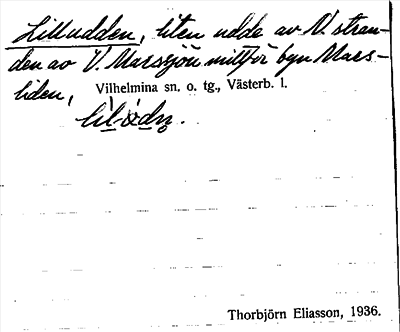 Lilludden, liten udde av N. stran-
den av V. Marssjön mittför byn Mars-
liden, Vilhelmina sn. o. tg., Västerb. l.
Thorbjörn Eliasson, 1936.